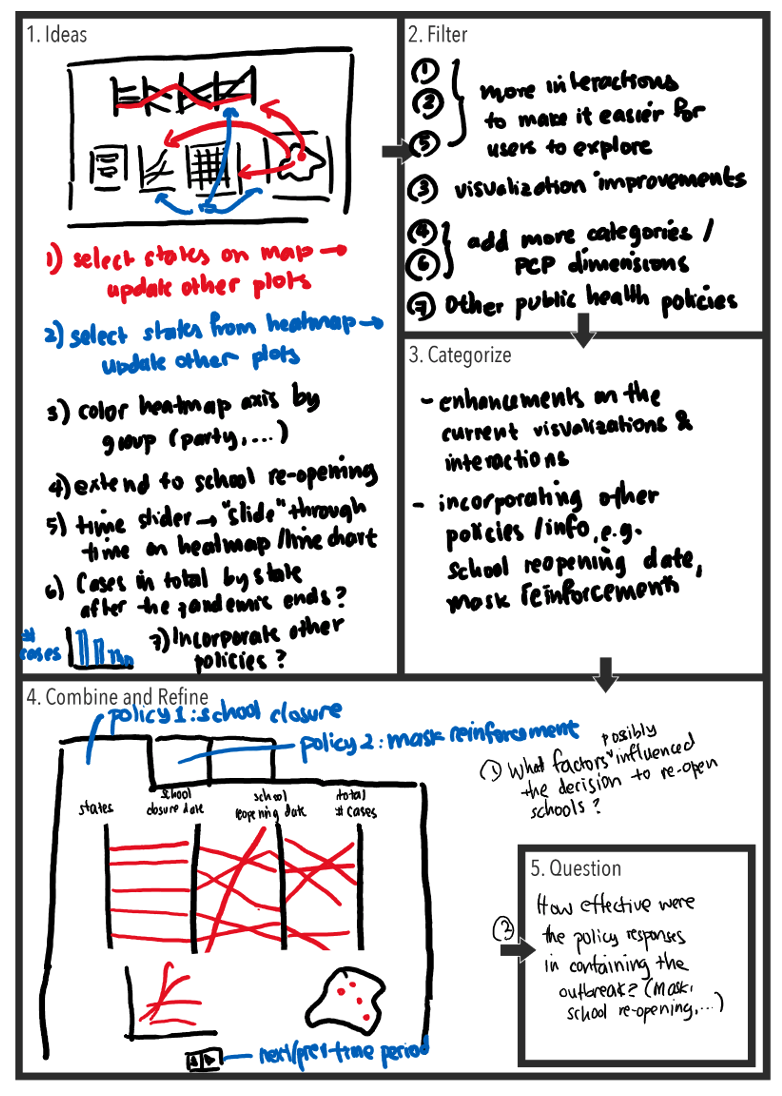 1. Ideas
1) select states on map →
update other plots
2) select states from heatmap →
update other plots
3) color heatmap axis by
group (party,...)
4) extend to school re-opening
5) time slider → "slide" through
time on heatmap/line chart
6) Cases in total by state
after the pandemic ends?
# cases
7) Incorporate other
policies?
2. Filter
① ② ⑤ more interactions
to make it easier for
users to explore
③ visualization improvements
④ ⑥ add more categories /
PCP dimensions
⑦ Other public health policies
3. Categorize
- enhancements on the
current visualizations &
interactions
- incorporating other
policies/info, e.g.
school reopening date,
mask reinforcement
4. Combine and Refine
policy 1: school closure
policy 2: mask reinforcement
states
school
closure date
school
reopening date
total
# cases
next/prev time period
① What factors possibly influenced
the decision to re-open
schools?
②
5. Question
How effective were
the policy responses
in containing the
outbreak? (mask,
school re-opening,...)